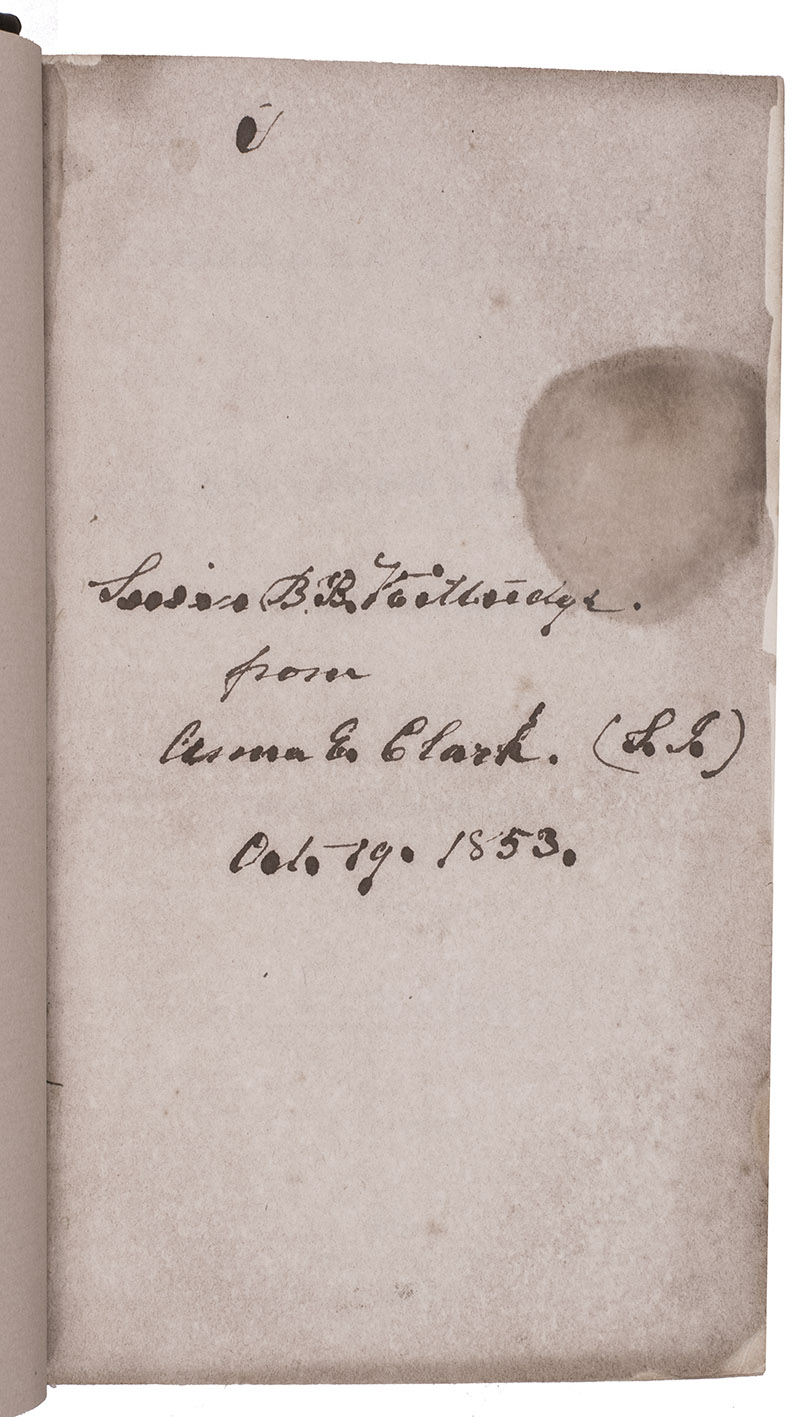 Susie B. B. Kittredge.
from
Anna E. Clark. (S. S.)
Oct. 19. 1853.